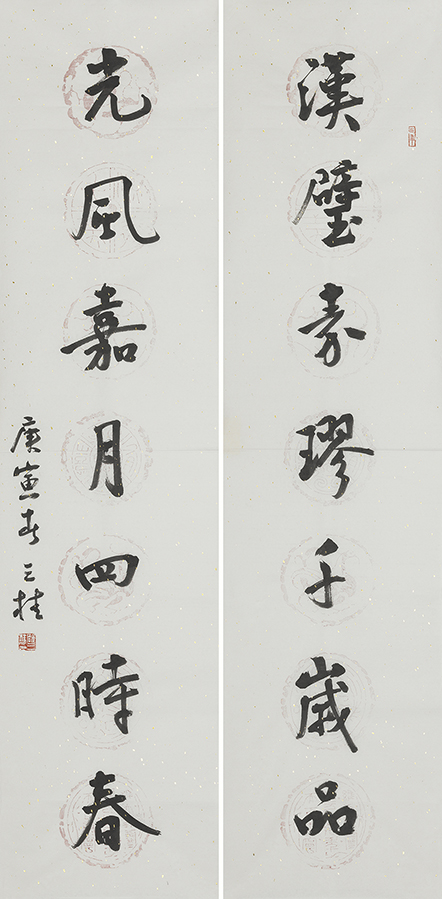 漢璧秦璆千歲品
光風嘉月四時春
庚寅春 三桂